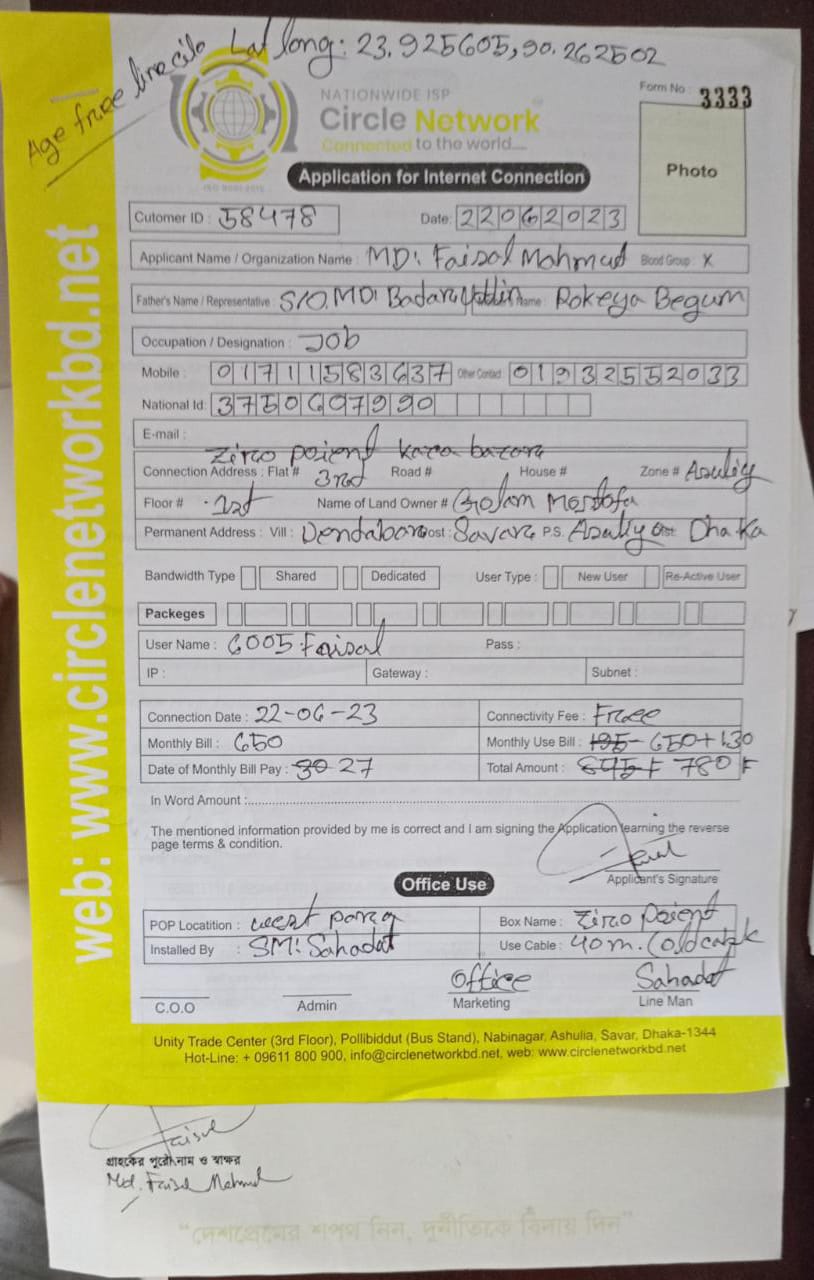 Age free line cilo Lat long: 23.925605,90.262502
NATIONWIDE ISP
Circle Network
Connected to the world....
ISO 9001:2015
Form No : 3333
Photo
Application for Internet Connection
Cutomer ID : 58478 Date: 22062023
Applicant Name / Organization Name : MD: Faisal Mahmud Blood Group : X
Father's Name / Representative : S/O. MD: Badar Uddin Name : Rokeya Begum
Occupation / Designation : Job
Mobile : 01711583637 Other Contact 01932552033
National Id: 3750697990
E-mail :
Ziro poient kaca bazar
Connection Address : Flat # 3rd Road # House # Zone # Asuliy
Floor # 1st Name of Land Owner # Golam Mostofa
Permanent Address : Vill : Dendabor Post : Savar P.S. Asuliya Dist: Dhaka
Bandwidth Type Shared Dedicated User Type : New User Re-Active User
Packeges
User Name : 6005 Faisal Pass :
IP : Gateway : Subnet :
Connection Date : 22-06-23 Connectivity Fee : Free
Monthly Bill : 650 Monthly Use Bill : 195- 650+130
Date of Monthly Bill Pay : 30 27 Total Amount : 845 780
In Word Amount :
The mentioned information provided by me is correct and I am signing the Application learning the reverse
page terms & condition.
Applicant's Signature
Office Use
POP Locatition : west para Box Name : Ziro poient
Installed By : SM: Sahadat Use Cable : 40m. (old cable
Office Sahadat
C.O.O Admin Marketing Line Man
Unity Trade Center (3rd Floor), Pollibiddut (Bus Stand), Nabinagar, Ashulia, Savar, Dhaka-1344
Hot-Line: + 09611 800 900, info@circlenetworkbd.net, web: www.circlenetworkbd.net
web: www.circlenetworkbd.net
গ্রাহকের পুরো নাম ও স্বাক্ষর
Md. Faisal Mahmud
"দেশপ্রেমের শপথ নিন, দুর্নীতিকে বিদায় দিন"